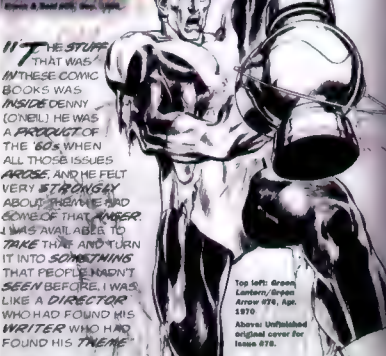 "THE STUFF
THAT WAS
IN THESE COMIC
BOOKS WAS
INSIDE DENNY
(O'NEIL) HE WAS
A PRODUCT OF
THE '60s WHEN
ALL THOSE ISSUES
AROSE, AND HE FELT
VERY STRONGLY
ABOUT THEM. HE HAD
SOME OF THAT ANGER.
I WAS AVAILABLE TO
TAKE THAT AND TURN
IT INTO SOMETHING
THAT PEOPLE HADN'T
SEEN BEFORE, I WAS
LIKE A DIRECTOR
WHO HAD FOUND HIS
WRITER WHO HAD
FOUND HIS THEME"
Top left: Green
Lantern/Green
Arrow #76, Apr.
1970
Above: Unfinished
original cover for
issue #76.